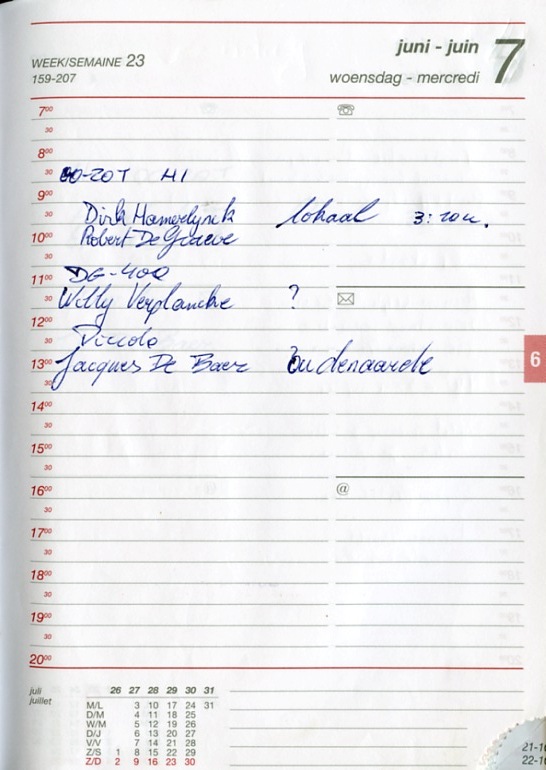 WEEK/SEMAINE 23
159-207
juni - juin
woensdag - mercredi
7
7⁰⁰
30
8⁰⁰
30 ZOT H1
9⁰⁰
30 Dirk Hamerlynck lokaal 3:
10⁰⁰ Robert De Graeve
30
11⁰⁰ DG-400
30 Willy Verplancke ?
12⁰⁰
30 Piccolo
13⁰⁰ Jacques De Baer Oudenaarde
6
30
14⁰⁰
30
15⁰⁰
30
16⁰⁰ @
30
17⁰⁰
30
18⁰⁰
30
19⁰⁰
30
20⁰⁰
juli
juillet
26 27 28 29 30 31
M/L 3 10 17 24 31
D/M 4 11 18 25
W/M 5 12 19 26
D/J 6 13 20 27
V/V 7 14 21 28
Z/S 1 8 15 22 29
Z/D 2 9 16 23 30